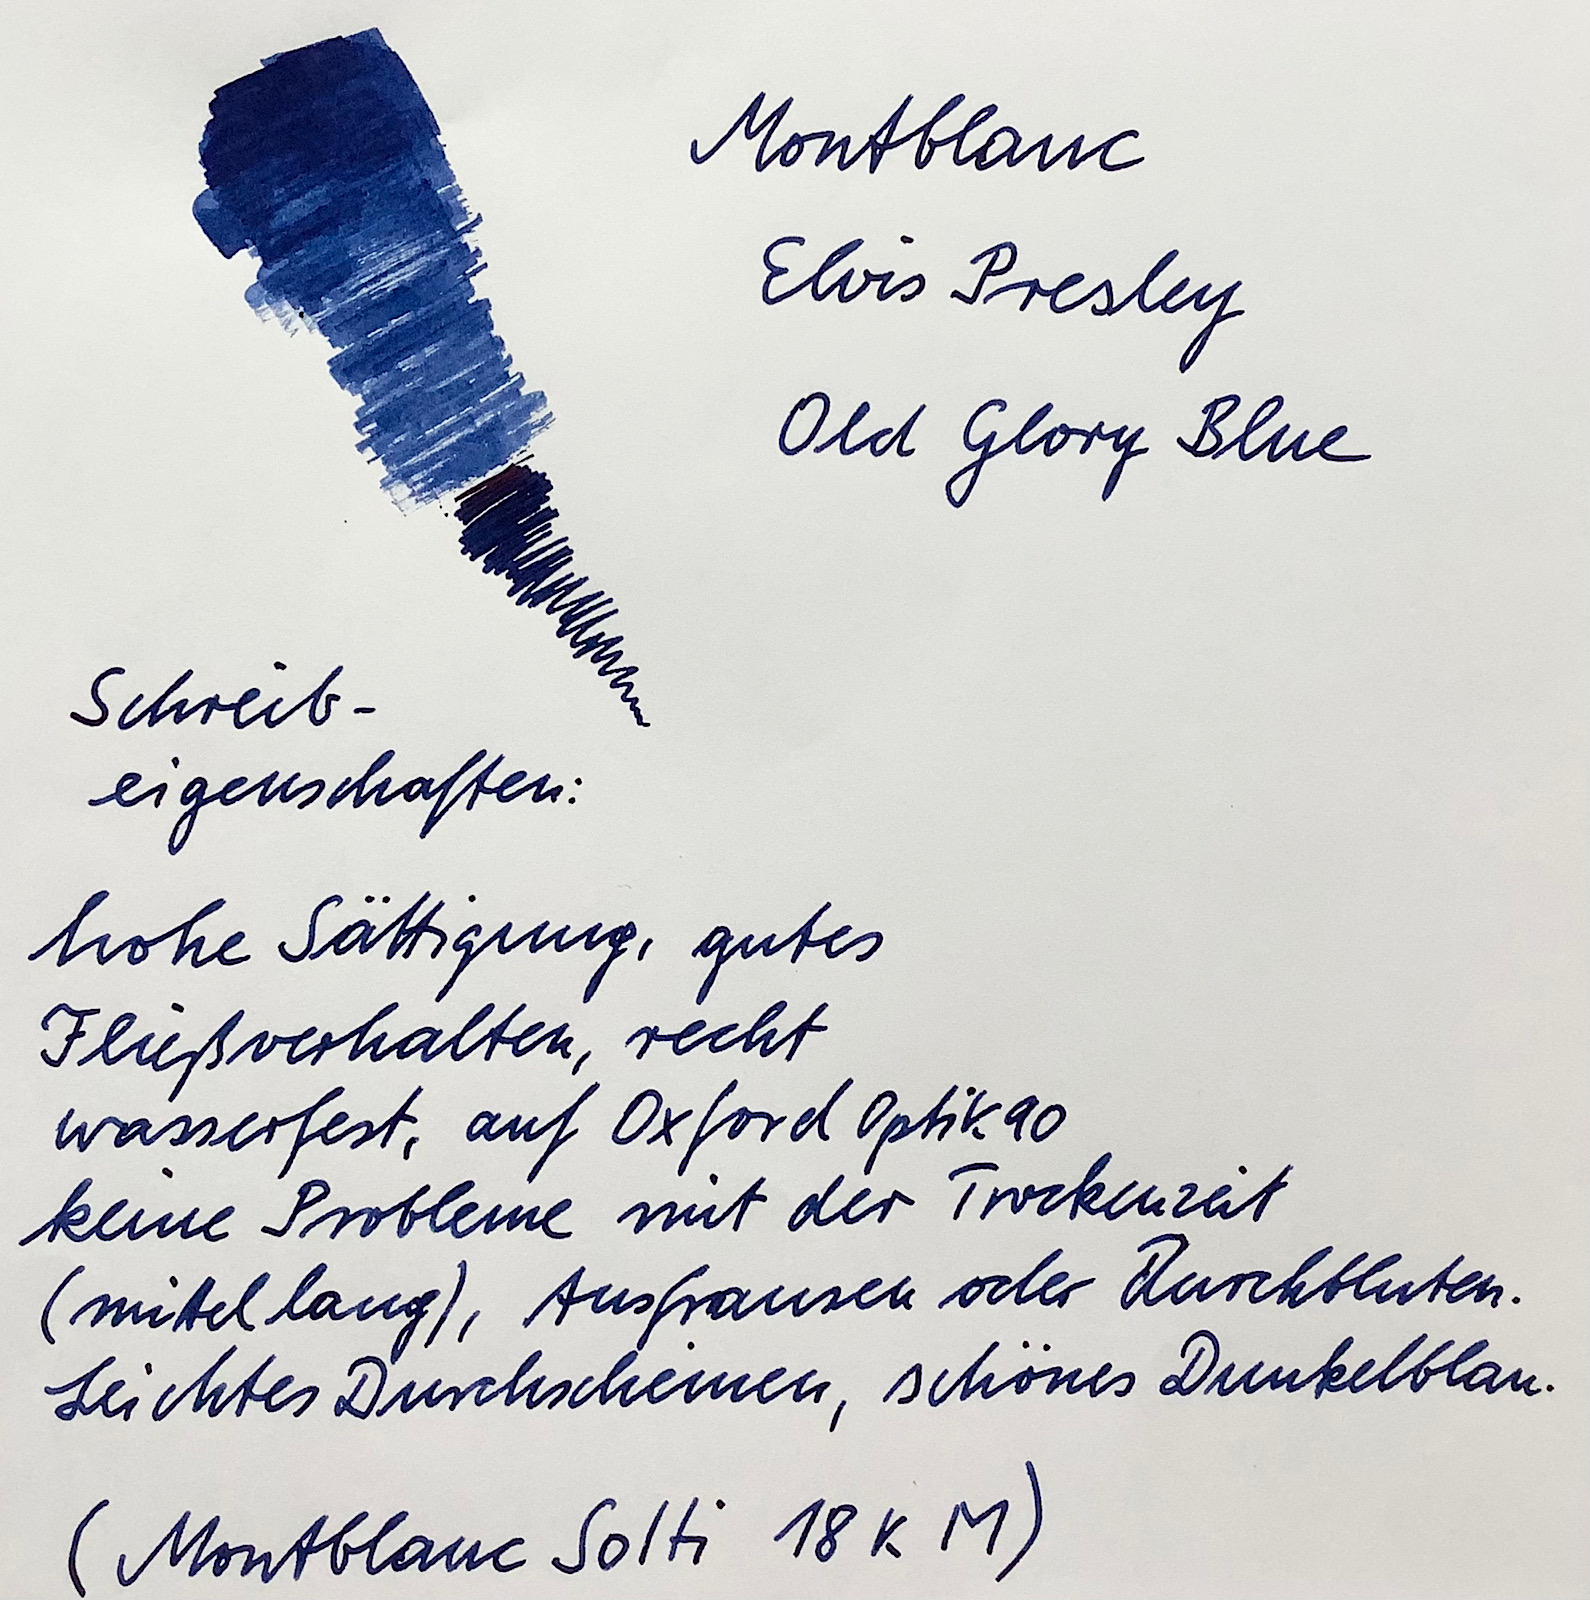 Montblanc
Elvis Presley
Old Glory Blue
Schreib-
eigenschaften:
hohe Sättigung, gutes
Fließverhalten, recht
wasserfest, auf Oxford Optik 90
keine Probleme mit der Trockenzeit
(mittel lang), Ausfransen oder Durchbluten.
Leichtes Durchscheinen, schönes Dunkelblau.
(Montblanc Solti 18 K M)